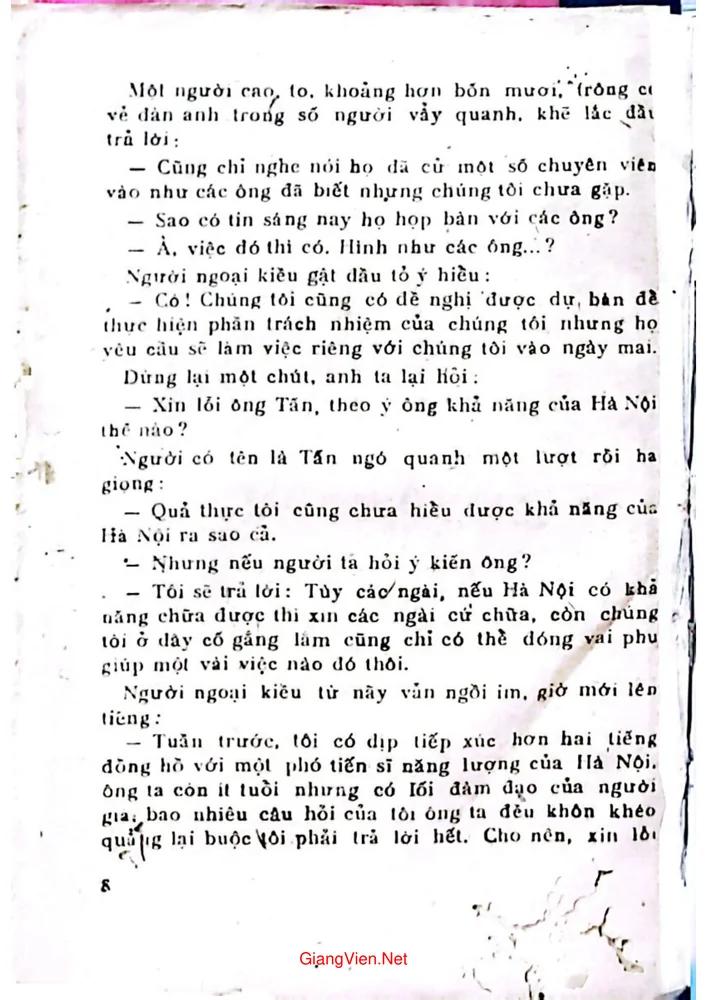 Một người cao, to, khoảng hơn bốn mươi, trông có
vẻ đàn anh trong số người vây quanh, khẽ lắc đầu
trả lời:
— Cũng chỉ nghe nói họ đã cử một số chuyên viên
vào như các ông đã biết nhưng chúng tôi chưa gặp.
— Sao có tin sáng nay họ họp bàn với các ông?
— À, việc đó thì có. Hình như các ông...?
Người ngoại kiều gật đầu tỏ ý hiểu:
— Có! Chúng tôi cũng có đề nghị được dự, bàn để
thực hiện phần trách nhiệm của chúng tôi nhưng họ
yêu cầu sẽ làm việc riêng với chúng tôi vào ngày mai.
Dừng lại một chút, anh ta lại hỏi:
— Xin lỗi ông Tấn, theo ý ông khả năng của Hà Nội
thế nào?
Người có tên là Tấn ngó quanh một lượt rồi hạ
giọng:
— Quả thực tôi cũng chưa hiểu được khả năng của
Hà Nội ra sao cả.
— Nhưng nếu người ta hỏi ý kiến ông?
— Tôi sẽ trả lời: Tùy các ngài, nếu Hà Nội có khả
năng chữa được thì xin các ngài cứ chữa, còn chúng
tôi ở đây cố gắng lắm cũng chỉ có thể đóng vai phụ
giúp một vài việc nào đó thôi.
Người ngoại kiều từ nãy vẫn ngồi im, giờ mới lên
tiếng:
— Tuần trước, tôi có dịp tiếp xúc hơn hai tiếng
đồng hồ với một phó tiến sĩ năng lượng của Hà Nội.
ông ta còn ít tuổi nhưng có lối đàm đạo của người
già, bao nhiêu câu hỏi của tôi ông ta đều khôn khéo
quẳng lại buộc tôi phải trả lời hết. Cho nên, xin lỗi
8
GiangVien.Net